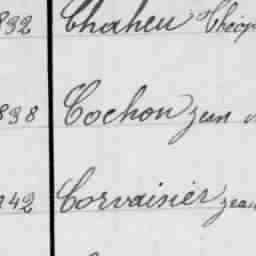 892 Chaheu Théop
898 Cochon Jean
142 Corvaisier Jean